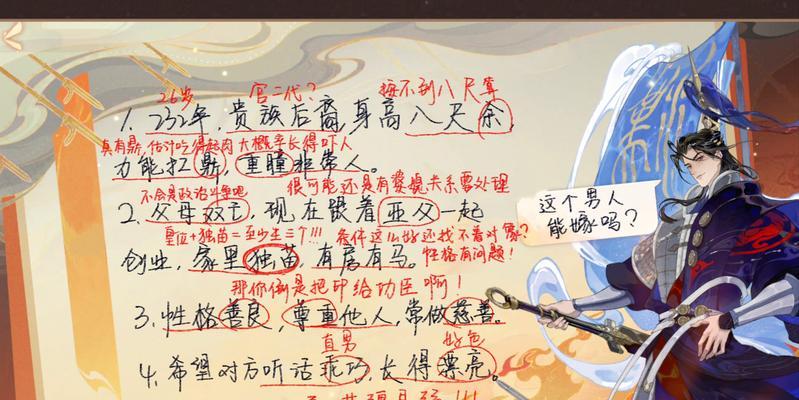 26岁 官二代? 搞不到八尺算
1. 232年,贵族后裔,身高八尺余,
真有鼎,估计吃得起肉 大概率长得吓人
力能扛鼎,重瞳非常人。
不会是政治斗争吧 很可能还具有婆媳关系要处理
2. 父母双亡,现在跟着亚父一起
皇位+独苗=至少生三个!!! 条件这么好还找不着对象?
创业,家里独苗,有房有马。 性格有问题!
那你倒是把印给功臣啊!
3. 性格善良,尊重他人,常做慈善。
直男 好色
4. 希望对方听话乖巧,长得漂亮。
这个男人
能嫁吗?